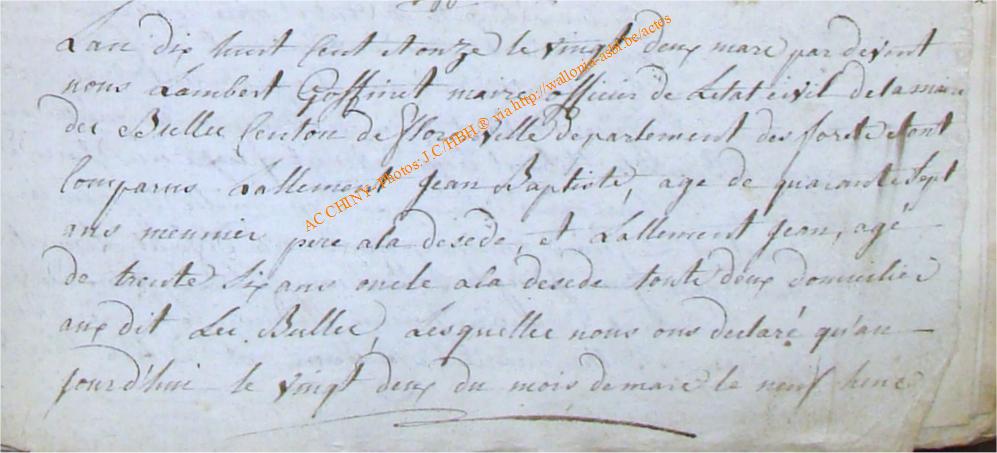 Lan dix huit Cent et onze le vingt deux mars par devant
nous Lambert Goffinet maire officier de Letat civil de la mairie
des Bullec Canton de Florenville departement des forets sont
Comparus Lallement Jean Baptiste, age de quarante Sept
ans meunier pere a la desede, et Lallement Jean, agé
de trente Six ans oncle a la desede toute deux domicilier
aux dit Les Bullec, Lesquellec nous ons declaré qu'au
jourd'hui le vingt deux du mois de mars le neuf hure
AC CHINY - Photos: J C/HBH ® via http://wallonia-asbl.be/actes